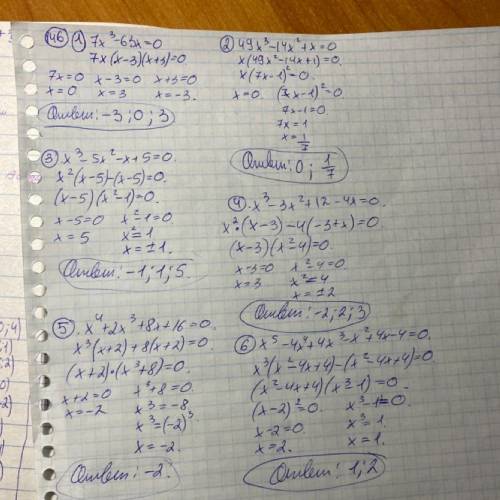 146 1) 7x³-63x=0
7x(x-3)(x+3)=0
7x=0 x-3=0 x+3=0
x=0 x=3 x=-3.
Ответ: -3; 0; 3
2) 49x³-14x²+x=0
x(49x²-14x+1)=0.
x(7x-1)²=0.
x=0. (7x-1)²=0
7x-1=0.
7x=1
x=1/7
Ответ: 0; 1/7
3) x³-5x²-x+5=0.
x²(x-5)-(x-5)=0.
(x-5)(x²-1)=0.
x-5=0 x²-1=0
x=5 x²=1
x=±1.
Ответ: -1; 1; 5.
4) x³-3x²+12-4x=0.
x²·(x-3)-4(-3+x)=0
(x-3)(x²-4)=0.
x-3=0 x²-4=0
x=3 x²=4
x=±2
Ответ: -2; 2; 3
5) x⁴+2x³+8x+16=0.
x³(x+2)+8(x+2)=0.
(x+2)·(x³+8)=0.
x+2=0 x³+8=0.
x=-2 x³=-8.
x³=(-2)³
x=-2.
Ответ: -2.
6) x⁵-4x⁴+4x³-x²+4x-4=0.
x³(x²-4x+4)-(x²-4x+4)=0
(x²-4x+4)(x³-1)=0
(x-2)²=0. x³-1=0.
x-2=0 x³=1.
x=2. x=1.
Ответ: 1; 2